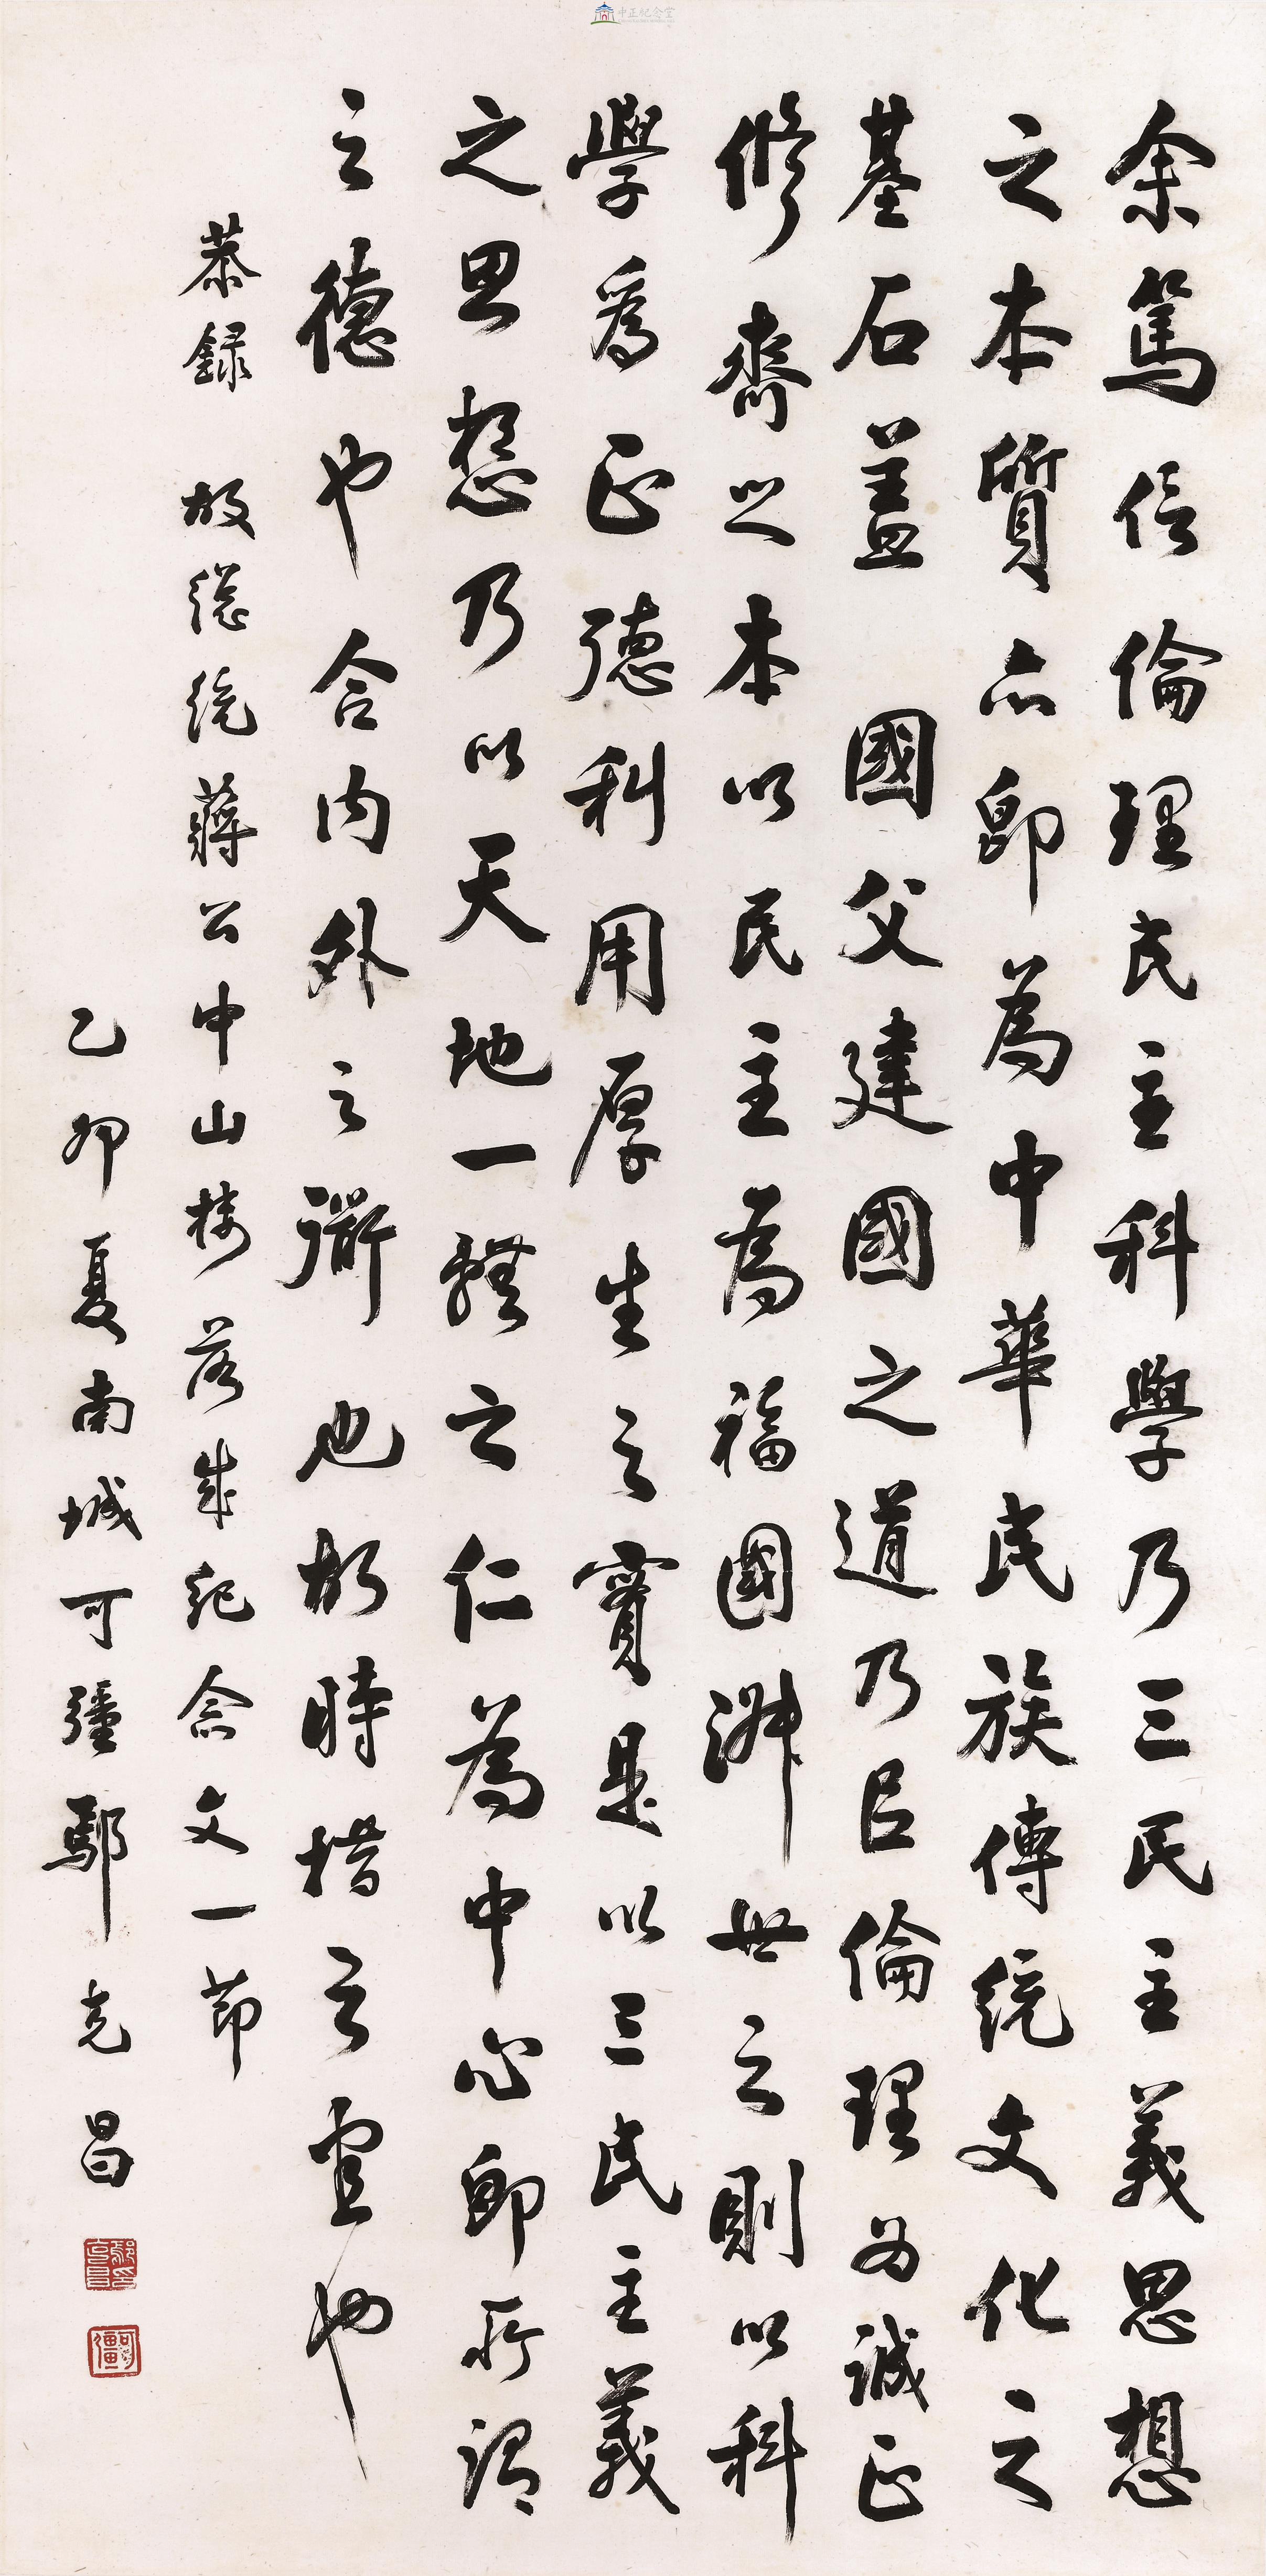 中正紀念堂
余篤信倫理民主科學乃三民主義思想
之本質亦即為中華民族傳統文化之
基石蓋 國父建國之道乃㠯倫理為誠正
修齊之本以民主為福國淑世之則以科
學為正德利用厚生之實是以三民主義
之思想乃以天地一體之仁為中心即所謂
之德也合內外之衟也故時措之宜也
恭錄 故總統蔣公中山樓落成紀念文一節
乙卯夏南城可彊鄢克昌